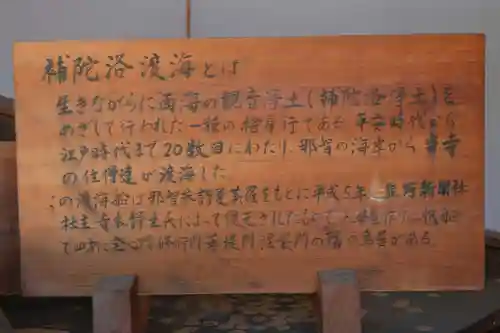 補陀洛渡海とは
生きながらに南海の観音浄土(補陀洛浄土)を
めざして行われた一種の捨身行である 平安時代から
江戸時代まで20数回にわたり、那智の海岸から当寺
の住僧達が渡海した
この渡海船は那智参詣曼荼羅をもとに平成5年に熊野新聞社
社主寺本静生氏によって復元されたもので
である 発心門修行門菩提門涅槃門の四つの鳥居がある